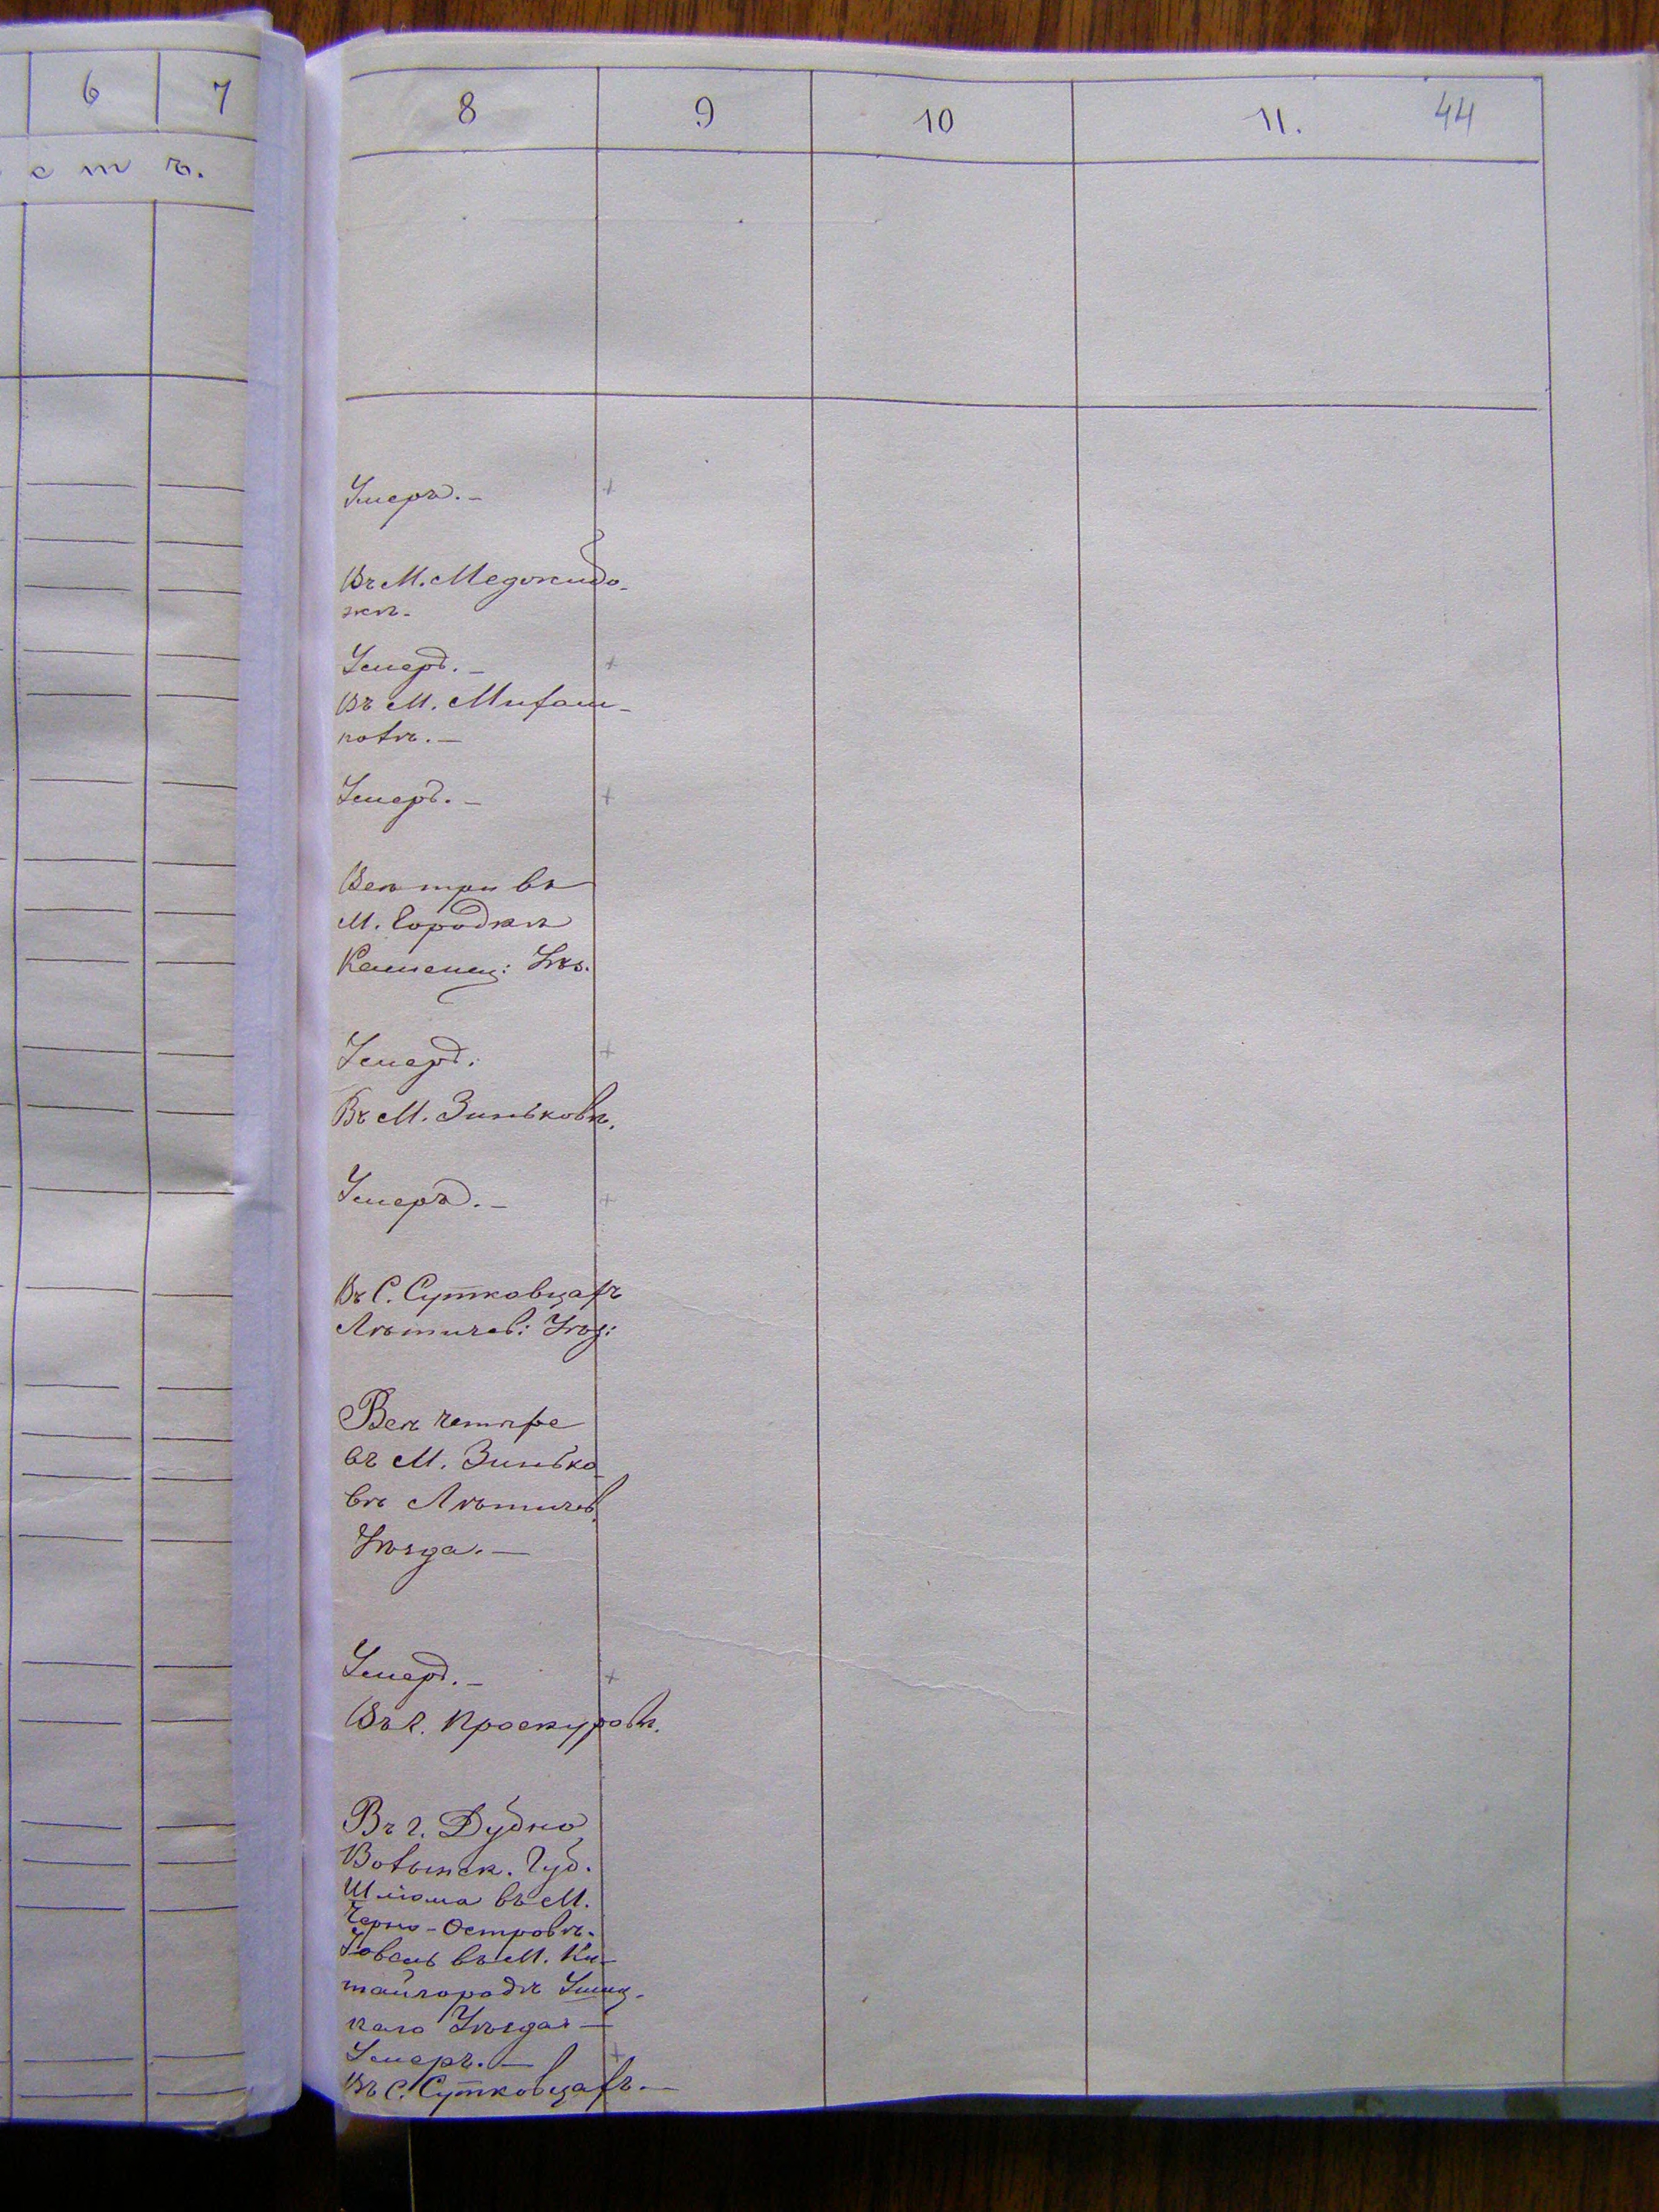 6 7
с т ъ.
8 9 10 11. 44
Умеръ.-
Въ М. Меджибо-
жѣ.
Умеръ.-
Въ М. Михал-
полѣ.-
Умеръ.-
Всѣ три въ
М. Городкѣ
Каменец: Уѣз.
Умеръ:
Въ М. Зиньковѣ.
Умеръ.-
Въ С. Сутковцахъ
Лѣтичев: Уѣз:
Всѣ четыре
въ М. Зинько
вѣ Лѣтичев.
Уѣзда.-
Умеръ.-
Въ г. Проскуровѣ.
Въ г. Дубно
Волынск. Губ.
Шліома въ М.
Черно-Островѣ.
въ М. Ки-
тайгородѣ Ушиц-
каго Уѣзда-
Умеръ.-
Въ С. Сутковцахъ.-